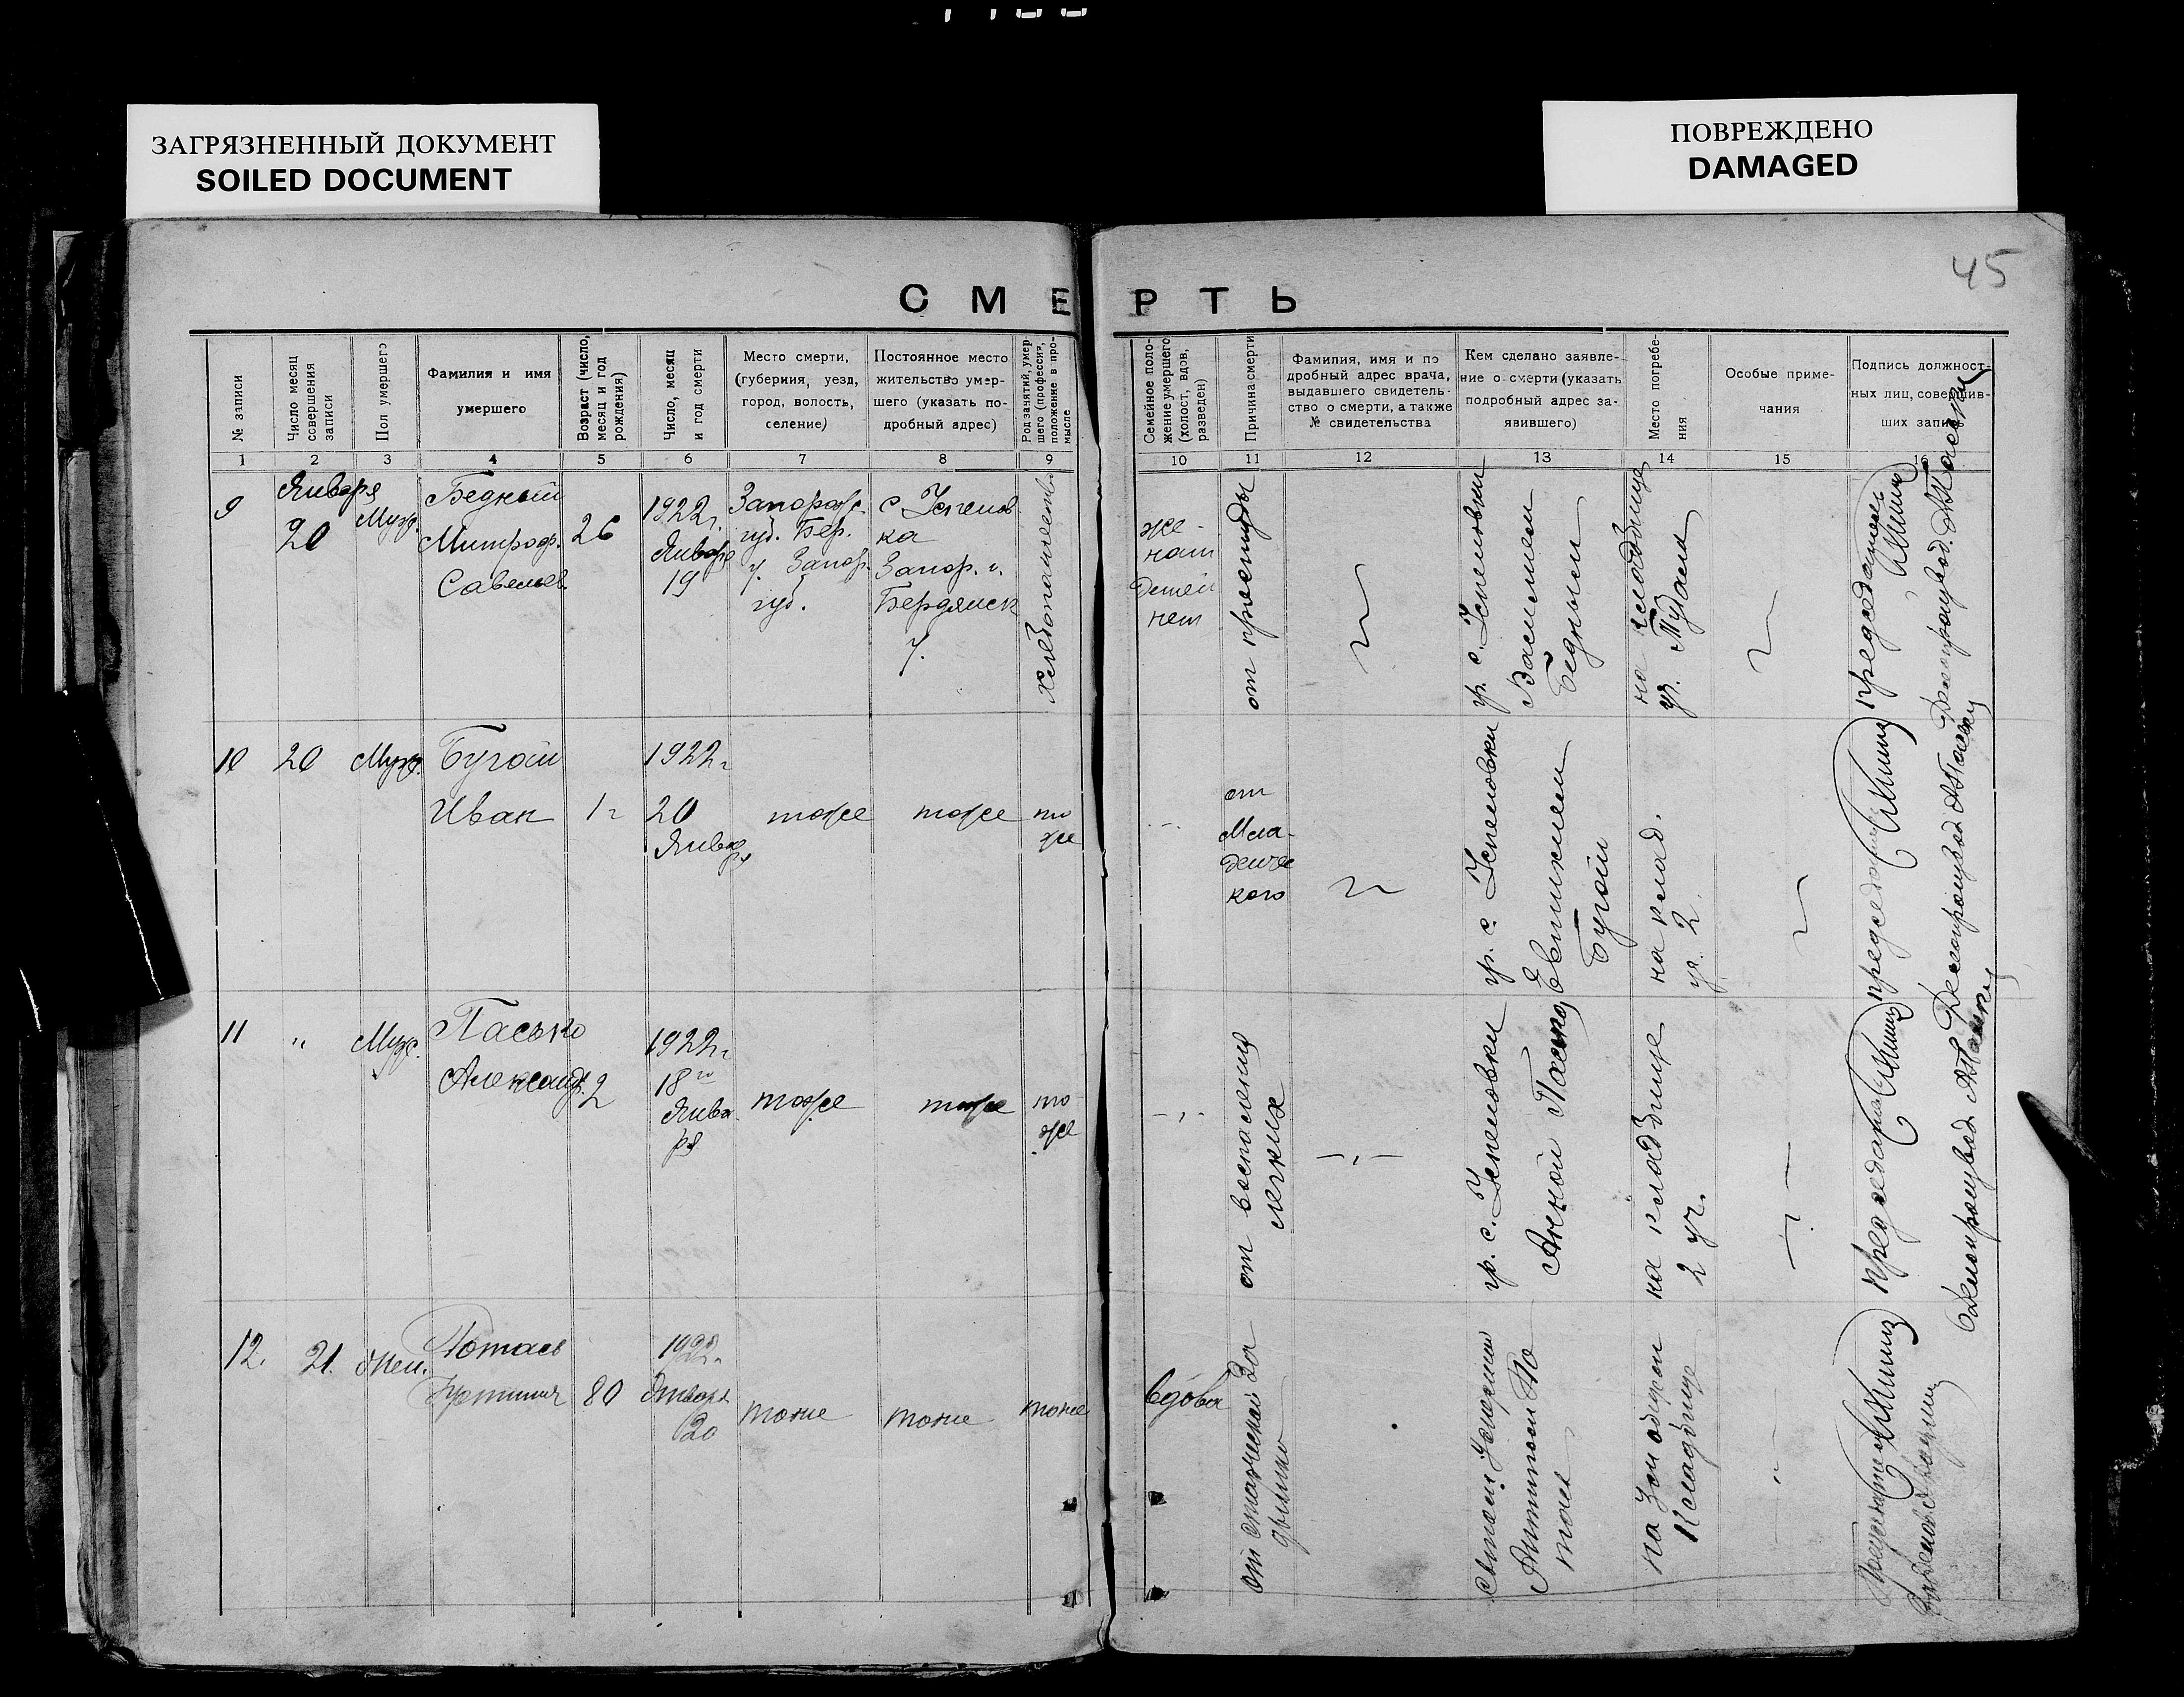 ЗАГРЯЗНЕННЫЙ ДОКУМЕНТ
SOILED DOCUMENT
ПОВРЕЖДЕНО
DAMAGED
45
СМЕРТЬ
№ записи
Число месяц совершения записи
Пол умершего
Фамилия и имя умершего
Возраст (число, месяц и год рождения)
Число, месяц и год смерти
Место смерти, (губерния, уезд, город, волость, селение)
Постоянное место жительство умершего (указать подробный адрес)
Род занятий, умершего (профессия, положение в промысле
Семейное положение умершего (холост, вдов, разведен)
Причина смерти
Фамилия, имя и подробный адрес врача, выдавшего свидетельство о смерти, а также № свидетельства
Кем сделано заявление о смерти (указать подробный адрес заявившего)
Место погребения
Особые примечания
Подпись должностных лиц, совершивших запись
1 2 3 4 5 6 7 8 9 10 11 12 13 14 15 16
9
Января
20
Муж.
Бедный
Митроф.
Савельев
26
1922 г.
Января
19
Запорож.
губ. Бер.
у. Запор.
губ.
с Успенов
ка
Запор. г.
Бердянск
у.
же
нат
детей
нет
гр. с. Успеновки
Василием
Бедным
на кладбище
председатель
10
20
Муж.
Бугай
Иван
1 г
1922 г
20
Январ
тоже
тоже
то
же
от
Мла-
денче
кого
гр. с. Успеновки
Евтихием
Бугай
на клад.
уч. 2.
11
"
Муж.
Пасько
Александ.
2
1922 г
18го
Янва
ря
тоже
тоже
то
же
от воспаления
легких
гр. с. Успеновки
Анной Пасько
на кладбище
2 уч.
12.
21.
Жен.
80
1922 г.
Января
20
тоже
тоже
тоже
вдова
Кладбище